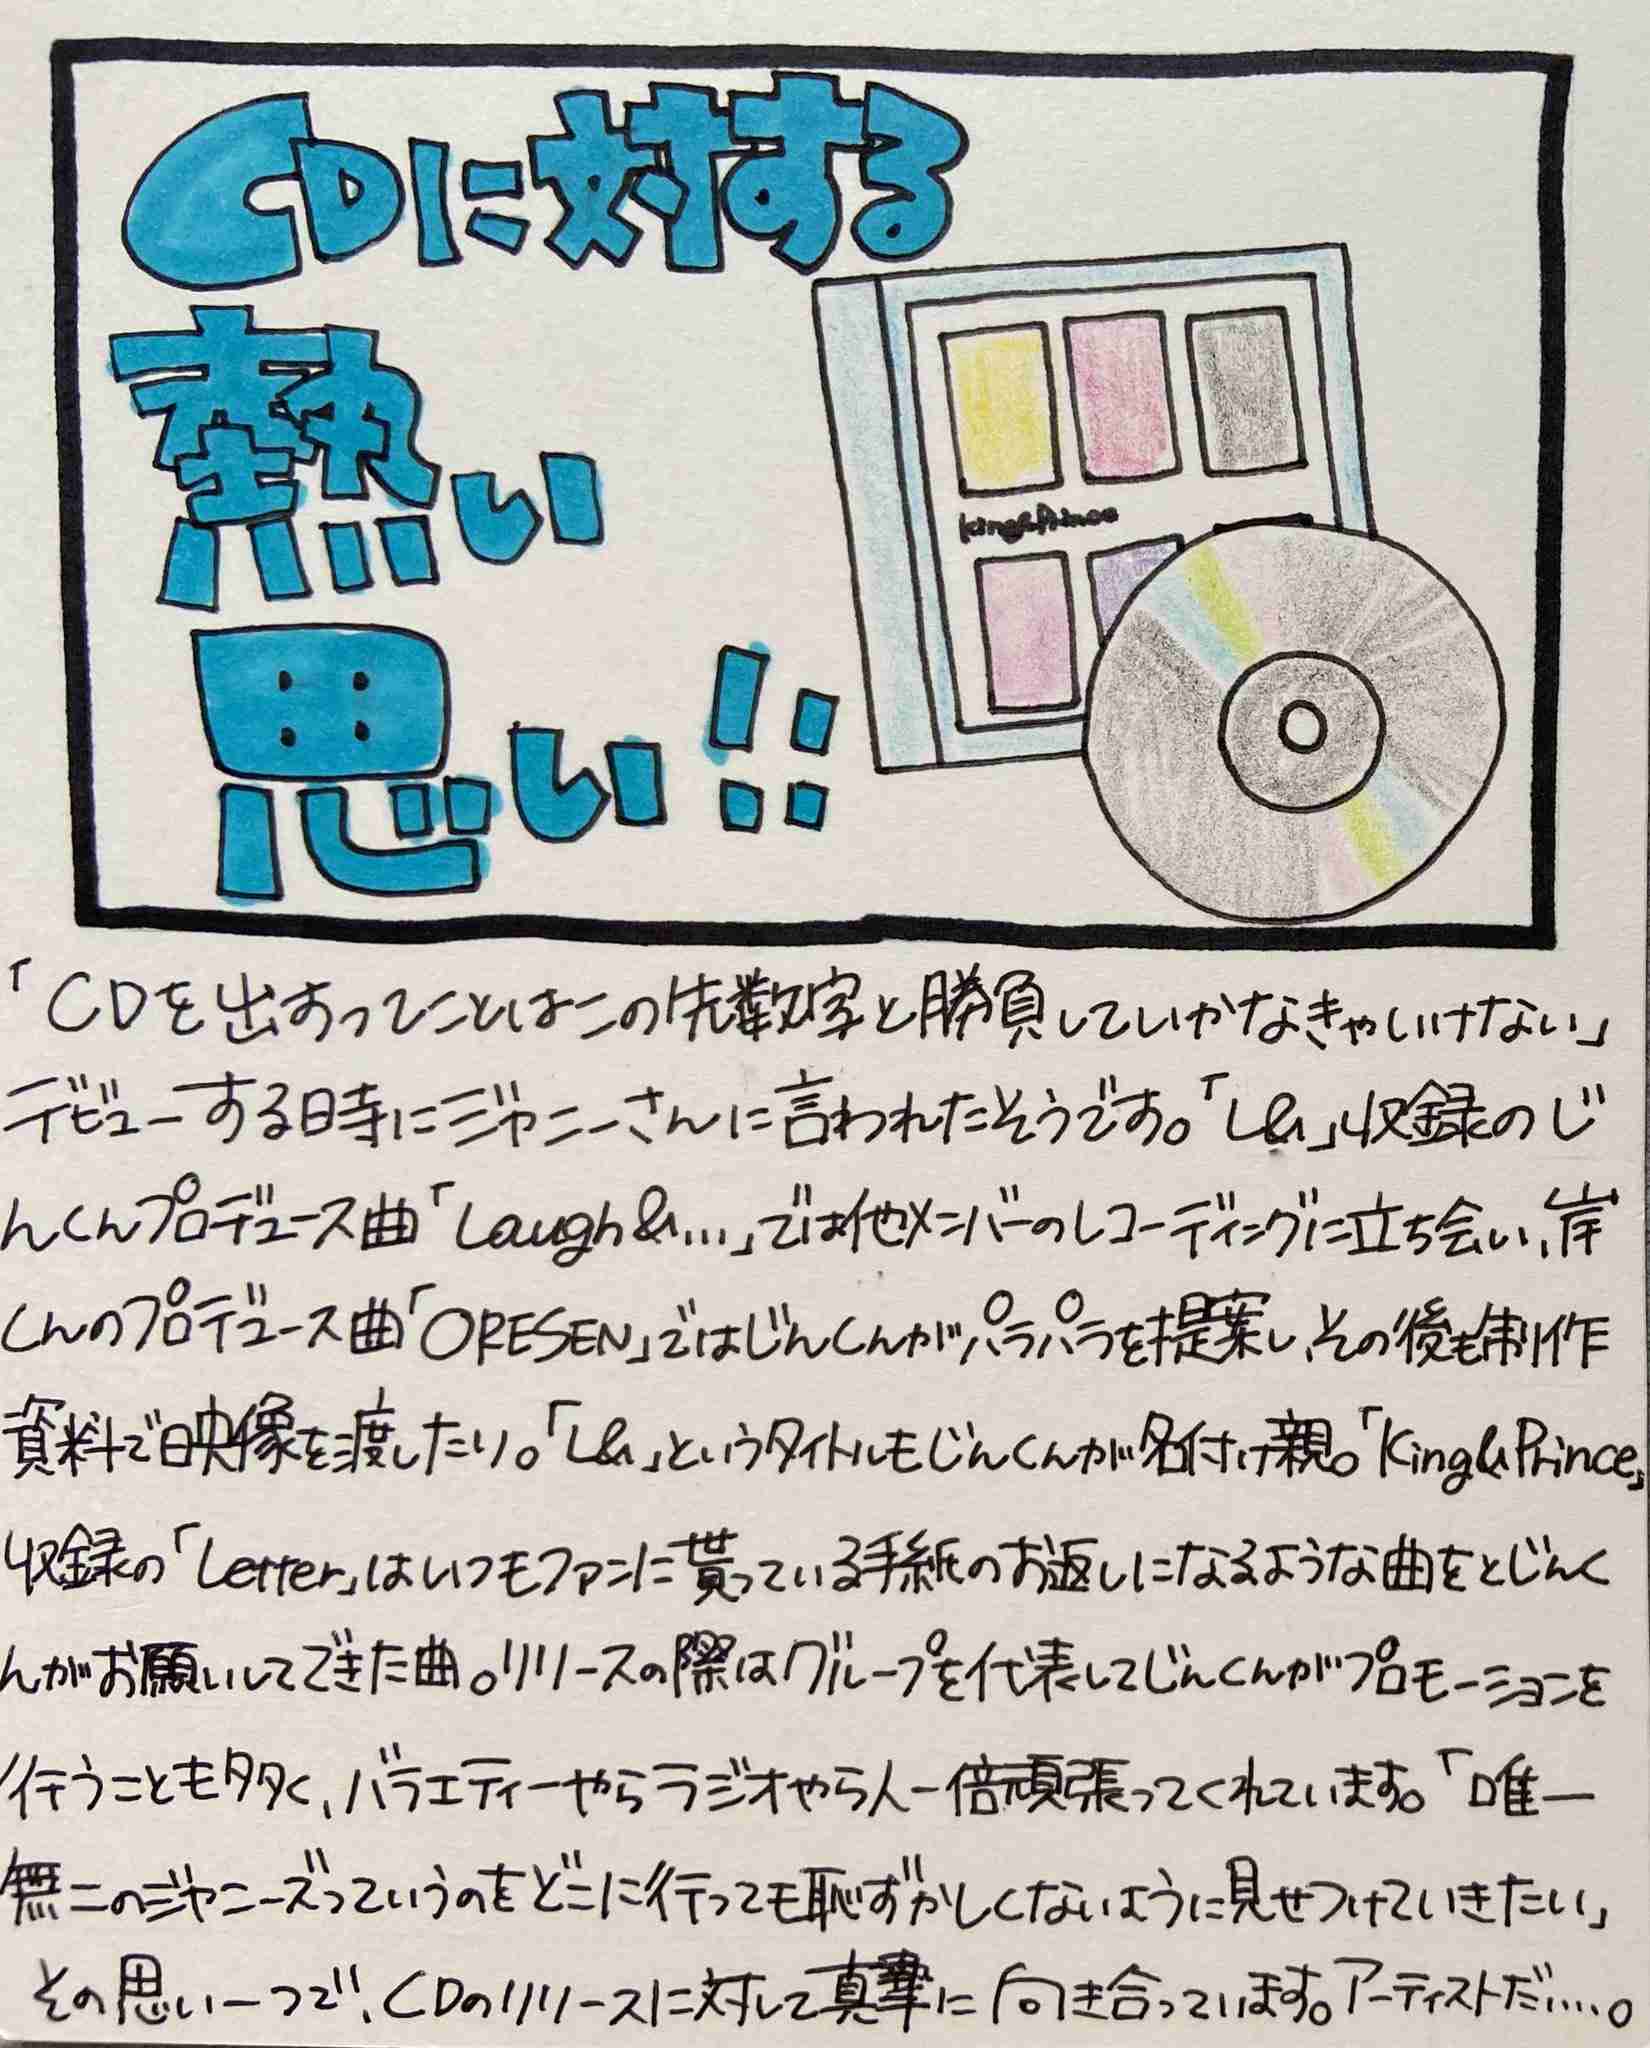 CDに対する
熱い
思い!!
King&Prince
「CDを出すってことはこの先数字と勝負していかなきゃいけない」
デビューする時にジャニーさんに言われたそうです。「L&」収録のじ
んくんプロデュース曲「Laugh&...」では他メンバーのレコーディングに立ち会い、岸
くんのプロデュース曲「ORESEN」ではじんくんがパラパラを提案し、その後も制作
資料で映像を渡したり。「L&」というタイトルもじんくんが名付け親。「King&Prince」
収録の「Letter」はいつもファンに貰っている手紙のお返しになるような曲をとじんく
んがお願いしてできた曲。リリースの際はグループを代表してじんくんがプロモーションを
行うことも多く、バラエティーやらラジオやら人一倍頑張ってくれています。「唯一
無二のジャニーズっていうのをどこに行っても恥ずかしくないように見せつけていきたい」
その思い一つで、CDのリリースに対して真摯に向き合っています。アーティストだ....。